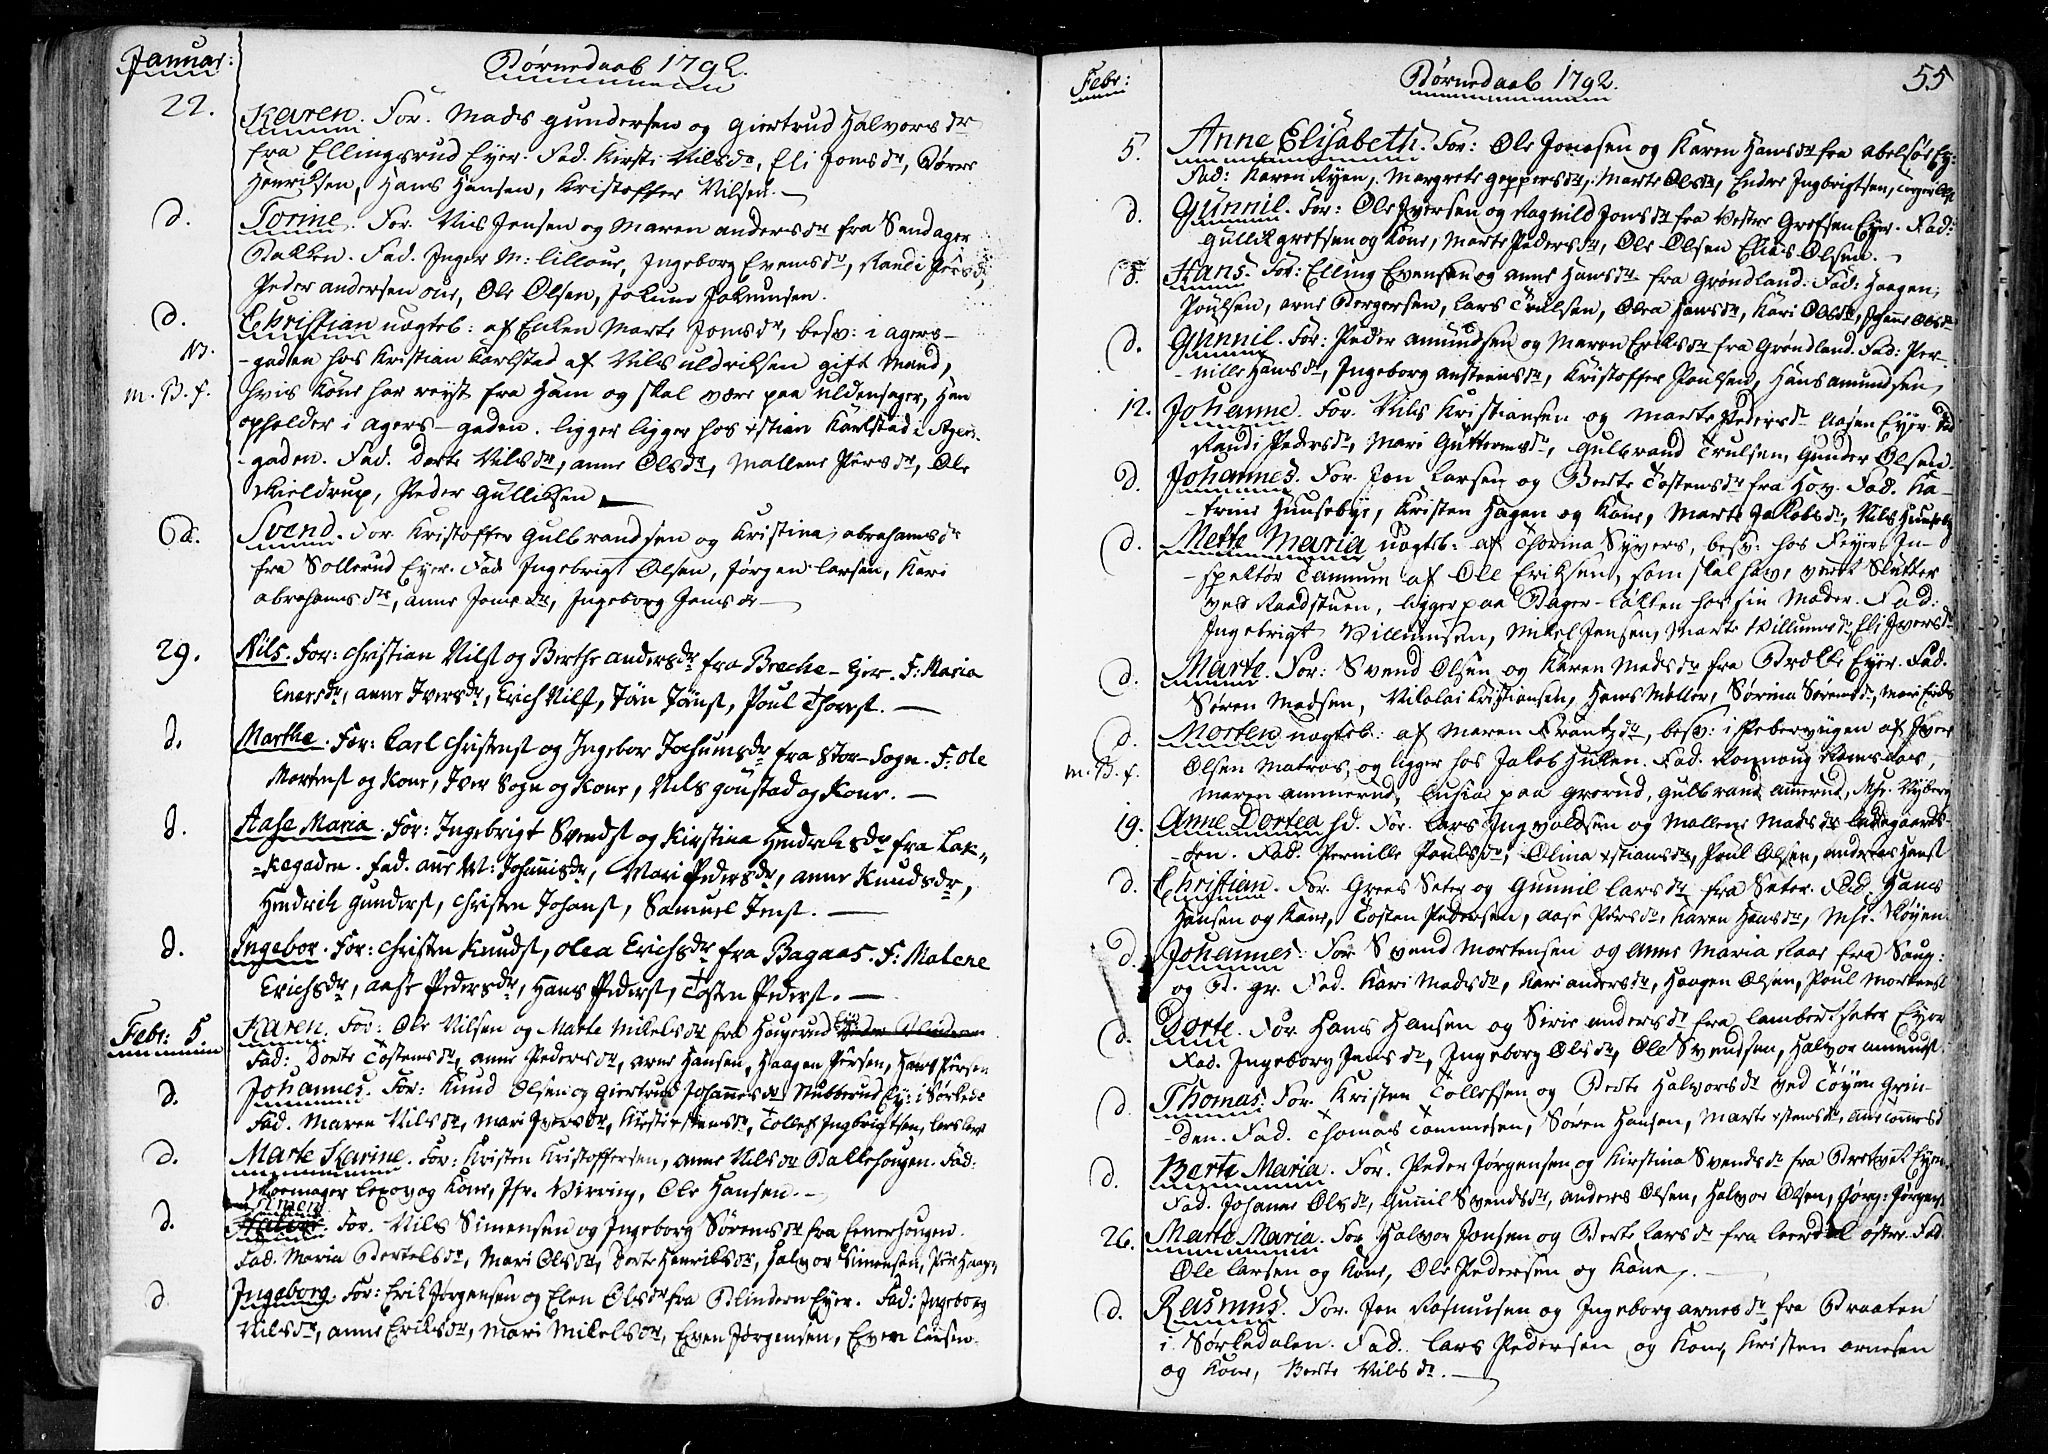 Januar:
Børnedaab 1792.
22. Karen. For. Mads Gundersen og Giertrud Halvors dr
fra Ellingsrud Eyer. Fad. Kirsti Nilsdr, Eli Jonsdr, Børre
Henriksen, Hans Hansen, Kristoffer Nilsen.
d. Torine. For. Nils Jensen og Maren Andersdr fra Sandager
Bakken. Fad. Inger M: Lilloue, Ingeborg Evensdr, Randi Persdr,
Peder Andersen oue, Ole Olsen, Jokum Jokumsen.
d. Christian uægteb: af Enken Marte Jonsdr, besv: i Agers-
NB. -gaden hos Kristian Karlstad af Nils Uldriksen gift Mand,
m. B. f. hvis Kone har reyst fra Ham og skal være paa Ullensager, Han
opholder i Agers-gaden. ligger ligger hos xstian Karlstad i Ager-
-gaden. Fad. Dorte Nilsdr, Anne Olsdr, Mallene Persdr, Ole
Kieldrup, Peder Gulliksen
d. Svend. For. Kristoffer Gulbrandsen og Kristina Abrahamsdr
fra Sollerud Eyer. Fad. Ingebrigt Olsen, Jørgen Larsen, Kari
Abrahamsdr, Anne Jensdr, Ingeborg Jensdr
29. Nils. For: Christian Nilst og Berthe Andersdr fra Breche-Ejer. F: Maria
Enersdr, Anne Iversdr, Erich Nilst, Jön Jönst, Poul Thorst.
d. Marthe. For: Carl Christenst og Ingebor Jochumsdr fra Stor-Sogn. F: Ole
Mortenst og Kone, Iver Sogn og Kone, Nils Gaustad og Kone.
d. Aase Maria. For: Ingebrigt Svendst og Kirstina Hendrichsdr fra Lak-
-kegaden. Fad. Ane M. Johannisdr, Mari Pedersdr, Anne Knudsdr,
Hendrich Gunderst, Christen Johanst, Samuel Jenst.
d. Ingebor. For: Christen Knudst, Olea Erichsdr fra Bagaas. F: Malene
Erichsdr, Aase Pedersdr, Hans Pederst, Tosten Pederst.
Febr: 5. Karen. For: Ole Nilsen og Marte Mikelsdr fra Haugerud
Fad: Dorte Tostensdr, Anne Pedersdr, Arne Hansen, Haagen Persen, Hans Persen
d. Johannes. For: Knud Olsen og Giertrud Johannesdr Stubberud Ey: i Sørked:
Fad. Maren Nilsdr, Mari Iversdr, Kirsti xstensdr, Tollef Ingbrigtsen, Lars Lars
d. Marte Karine. For: Kristen Kristoffersen, Anne Nilsdr Bakkehougen. Fad:
Skoemager Lexov og Kone, Jfr. Virring, Ole Hansen.
d. Simen For. Nils Simensen og Ingeborg Sørensdr fra Enerhougen.
Fad. Maria Bertelsdr, Mari Olsdr, Dorte Henriksdr, Halvor Simensen, Per Haag.
d. Ingeborg. For: Erik Jørgensen og Elen Olsdr fra Blindern Eyer. Fad: Ingeborg
Nilsdr, Anne Eriksdr, Mari Mikelsdr, Even Jørgensen, Even Larsen.
Febr:
Børnedaab 1792.
55
5. Anne Elisabeth. For: Ole Jonesen og Karen Hansdr fra Abelsøe Ey:
Fad: Karen Ryen, Margrete Jeppesdr, Marte Olsdr, Endre Ingbrigtsen, Torger Ols
d. Gunnil. For: Ole Iversen og Ragnild Jonsdr fra Vestre Grefsen Eyer. Fad:
Gullik Grefsen og Kone, Marte Pedersdr, Ole Olsen Elias Olsen.
d. Hans. For: Elling Evensen og Anne Hansdr fra Grøndland. Fad: Haagen
Poulsen, Arne Bergersen, Lars Trulsen, Olea Hansdr, Kari Olsdr, Johanne Olsdr
d. Gunnil. For: Peder Amundsen og Maren Eriksdr fra Grøndland. Fad: Per-
-nille Hansdr, Ingeborg Austensdr, Kristoffer Poulsen, Hans Amundsen
12. Johanne. For. Nils Kristiansen og Marte Pedersdr Aasen Eyer. Fad
Randi Pedersdr, Mari Guttormsdr, Gulbrand Trulsen, Gunder Olsen.
d. Johannes. For. Jon Larsen og Berte Tostensdr fra Hov. Fad. Ka-
-trine Huuseby, Kristen Hagen og Kone, Marte Jakobsdr, Nils Huuseby
d. Mette Maria uægteb: af Thorina Syvers, besv: hos Feyer-In-
-spektør Tamnum af Ole Eriksen, som skal hav: veret Slutter
ved Raadstuen, ligger paa Bager-Løkken hos sin Moder. Fad:
Ingebrigt Villumsen, Mikel Jensen, Marte Villumsdr Eli Iversdr
d. Marte. For: Svend Olsen og Karen Madsdr fra Brekke Eyer. Fad.
Søren Madsen, Nikolai Kristiansen, Hans Møller, Sørina Sørensdr, Mari Eriks
d. Morten uægteb: af Maren Frantzdr, besv: i Pebervigen af Iver
m. B. f. Olsen Matros, og ligger hos Jakob Huken. Fad. Ronnaug Ramsaas,
Maren Ammerud, Lusia paa Grorud, Gulbrand Amerud, Mst. Nyberg
19. Anne Dortea hd. For. Lars Ingvoldsen og Mallene Madsdr Ladegaards-
-øen. Fad. Pernille Poulsdr, Olina xstiansdr, Poul Olsen, Andreas Hanst
d. Christian. For. Grees Seter og Gunnil Larsdr fra Seter. Fad. Hans
Hansen og Kone, Tosten Pedersen, Aase Persdr, Karen Hansdr, Mst. Skøyen.
d. Johannes. For Svend Mortensen og Anne Maria Aas fra Saug:
og B. gr. Fad. Kari Madsdr, Kari Andersdr, Haagen Olsen, Poul Mortenst
d. Dorte. For. Hans Hansen og Sirie Andersdr fra Lambertseter Eyer
Fad. Ingeborg Jensdr, Ingeborg Olsdr, Ole Svendsen, Halvor Amundst.
d. Thomas. For. Kristen Tollefsen og Berte Halvorsdr ved Tøyen Grin-
-den. Fad. Thomas Tommesen, Søren Hansen, Marte xstensdr, Ane Tommesd
d. Berte Maria. For. Peder Jørgensen og Kirstina Svendsdr fra Bredvet Eyer.
Fad. Johanne Olsdr, Gunnil Svendsdr, Anders Olsen, Halvor Olsen, Jørg: Jørgens
26. Marte Maria. For. Halvor Jonsen og Berte Larsdr fra Leerdal østre. Fad.
Ole Larsen og Kone, Ole Pedersen og Kone.
d. Rasmus. For. Jon Rasmusen og Ingeborg Arnesdr fra Braaten
i Sørkedalen. Fad. Lars Pedersen og Kone, Kristen Arnesen
og Kone, Berte Nilsdr.